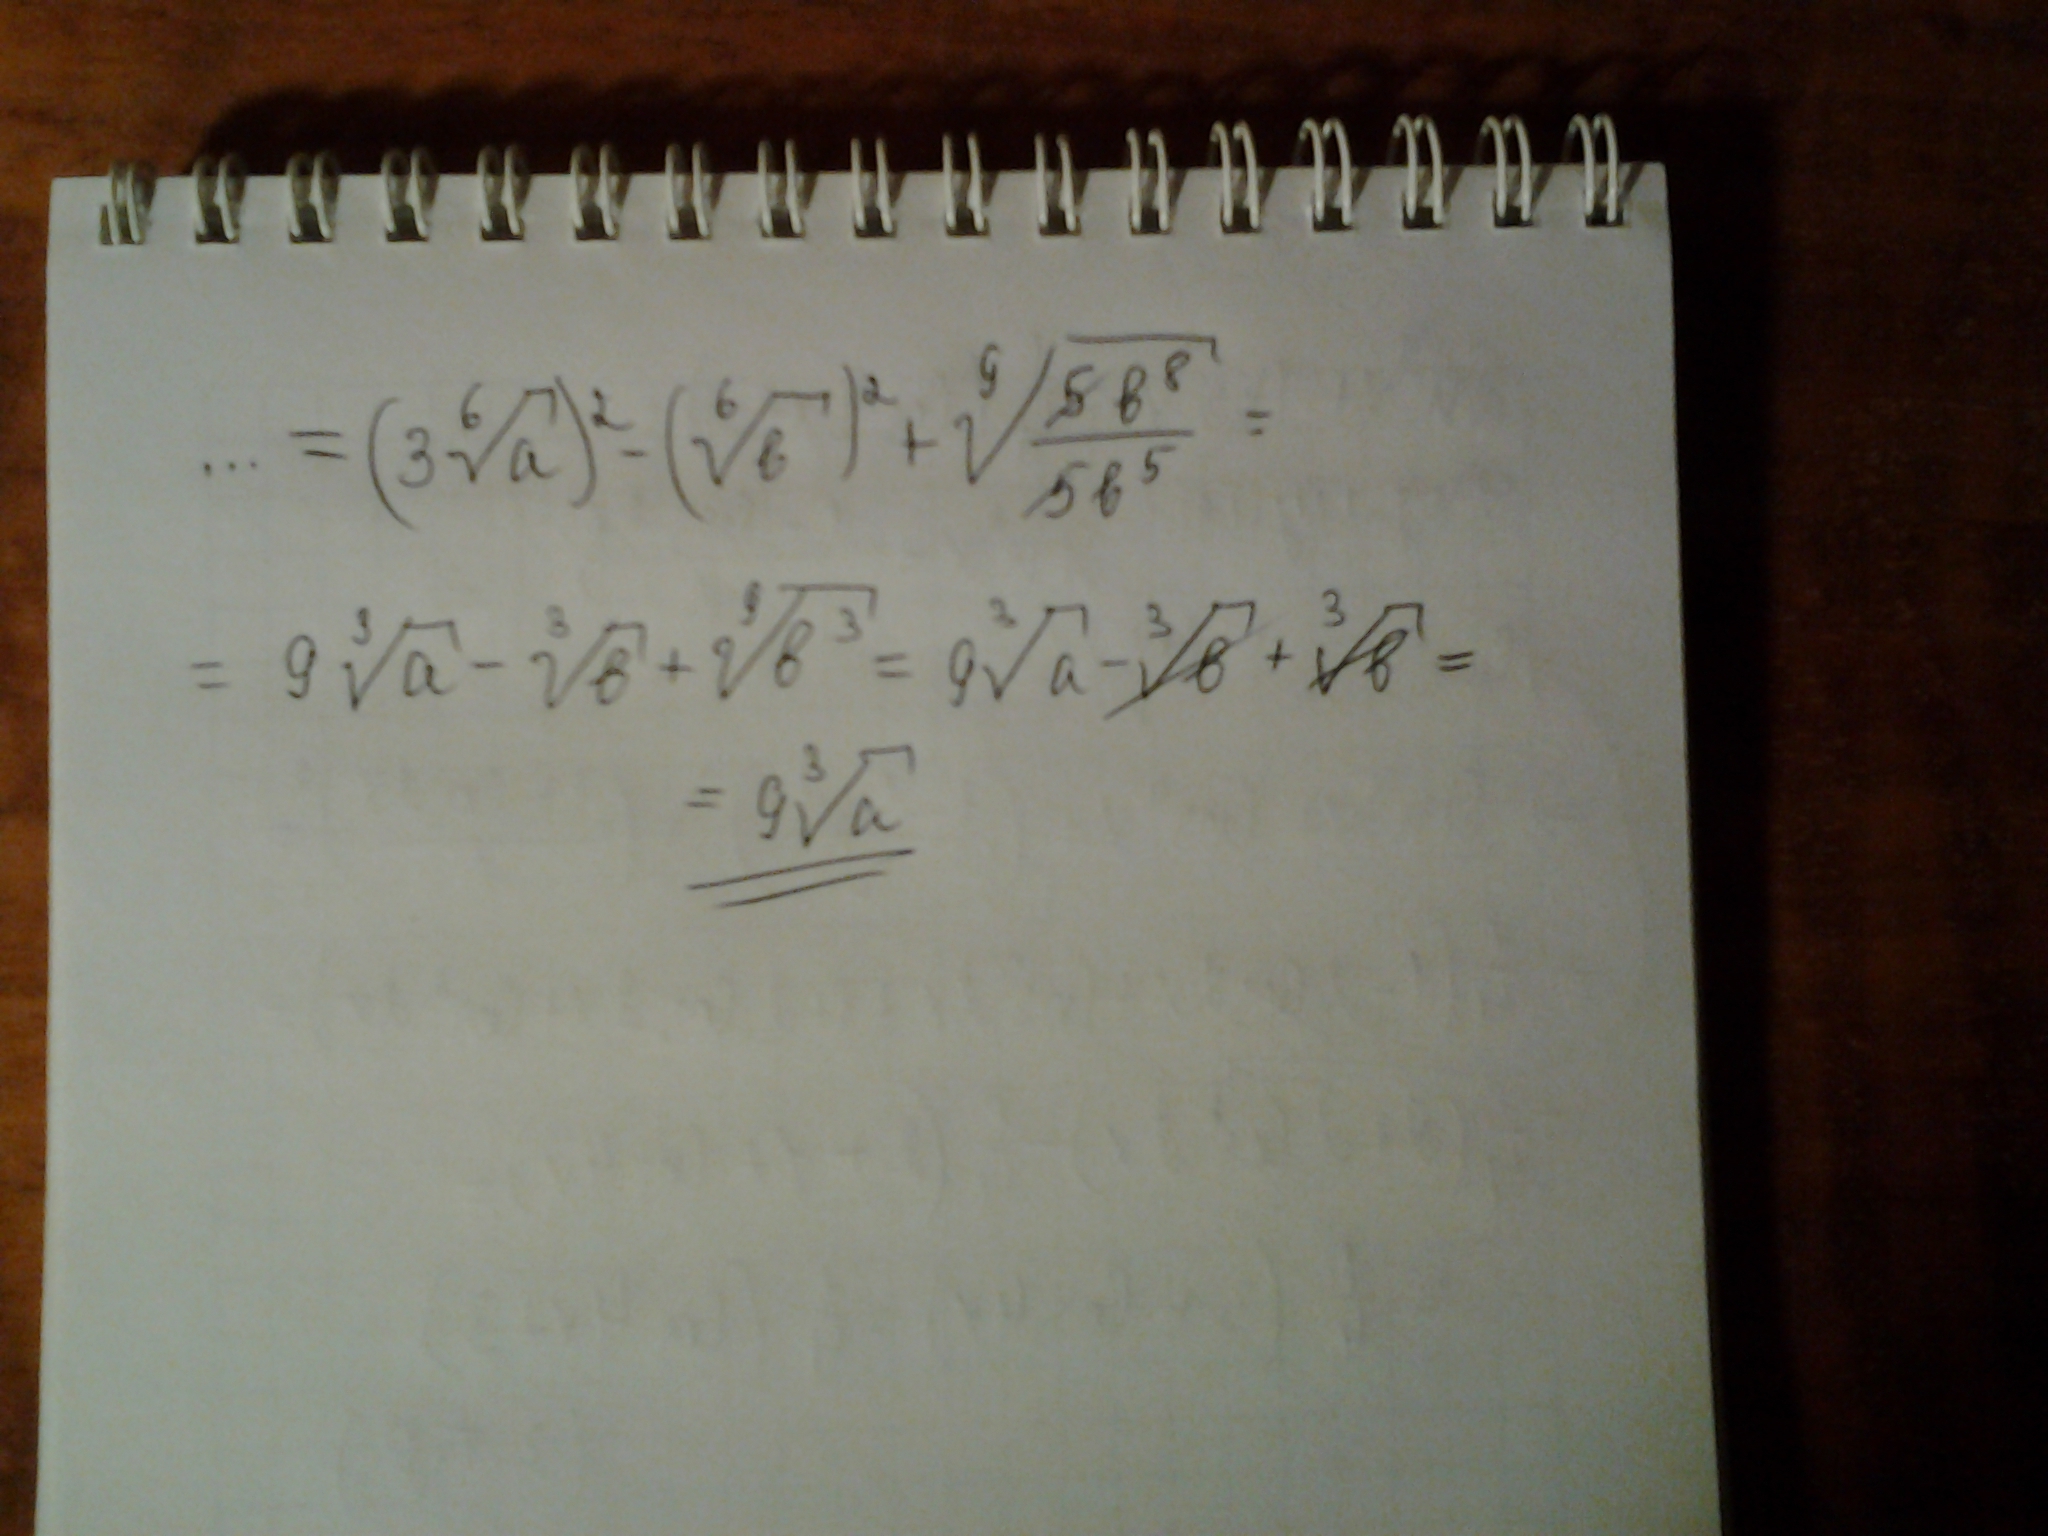 ... = (3⁶√a)² - (⁶√b)² + ⁹√(5b⁸/5b⁵) =
= 9³√a - ³√b + ⁹√b³ = 9³√a - ³√b + ³√b =
= 9³√a